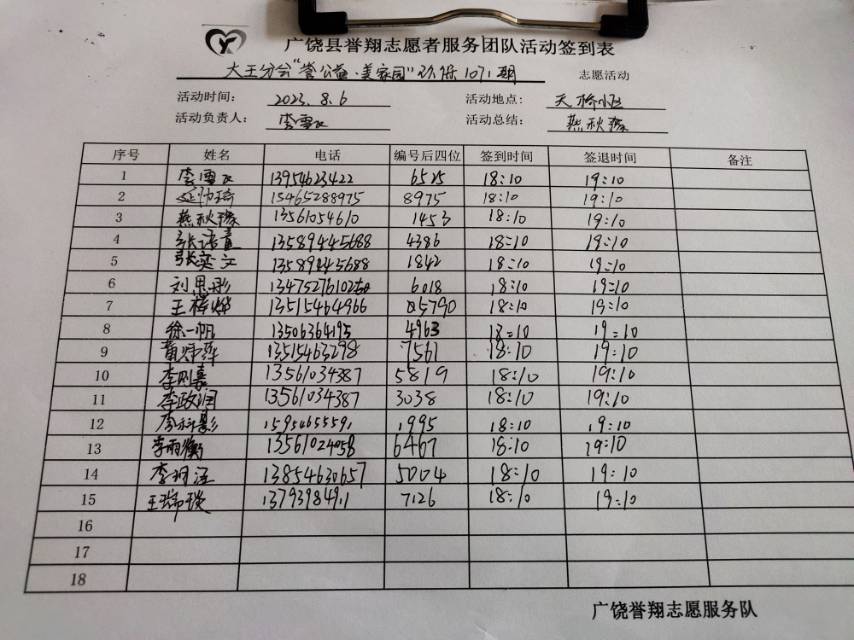 广饶县誉翔志愿者服务团队活动签到表
大王分会"誉公益·美家园"环保1071期 志愿活动
活动时间: 2023.8.6 活动地点: 天桥小区
活动负责人: 李雪 活动总结: 燕秋臻
序号 姓名 电话 编号后四位 签到时间 签退时间 备注
1 李雪 13954623422 6525 18:10 19:10
2 15465288975 8975 18:10 19:10
3 燕秋臻 13561054610 1453 18:10 19:10
4 13589445688 4386 18:10 19:10
5 张奕文 13589445688 1842 18:10 19:10
6 刘思彤 6018 18:10 19:10
7 王梓烨 13515464966 5790 18:10 19:10
8 徐一帆 13506364195 4963 18:10 19:10
9 13515463298 7561 18:10 19:10
10 李刚嘉 13561034387 5819 18:10 19:10
11 李政润 13561034387 3038 18:10 19:10
12 15954655591 1995 18:10 19:10
13 李雨衡 13561024058 6467 18:10 19:10
14 13854630657 5004 18:10 19:10
15 王瑞琰 1379398491 7126 18:10 19:10
16
17
18
广饶誉翔志愿服务队